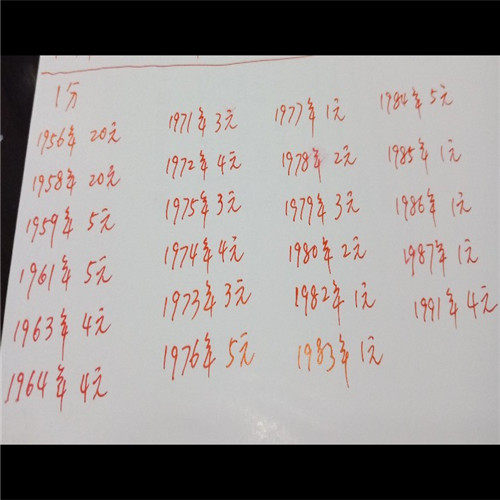 1分
1956年 20元
1958年 20元
1959年 5元
1961年 5元
1963年 4元
1964年 4元
1971年 3元
1972年 4元
1975年 3元
1974年 4元
1973年 3元
1976年 5元
1977年 1元
1978年 2元
1979年 3元
1980年 2元
1982年 1元
1983年 1元
1984年 5元
1985年 1元
1986年 1元
1987年 1元
1991年 4元